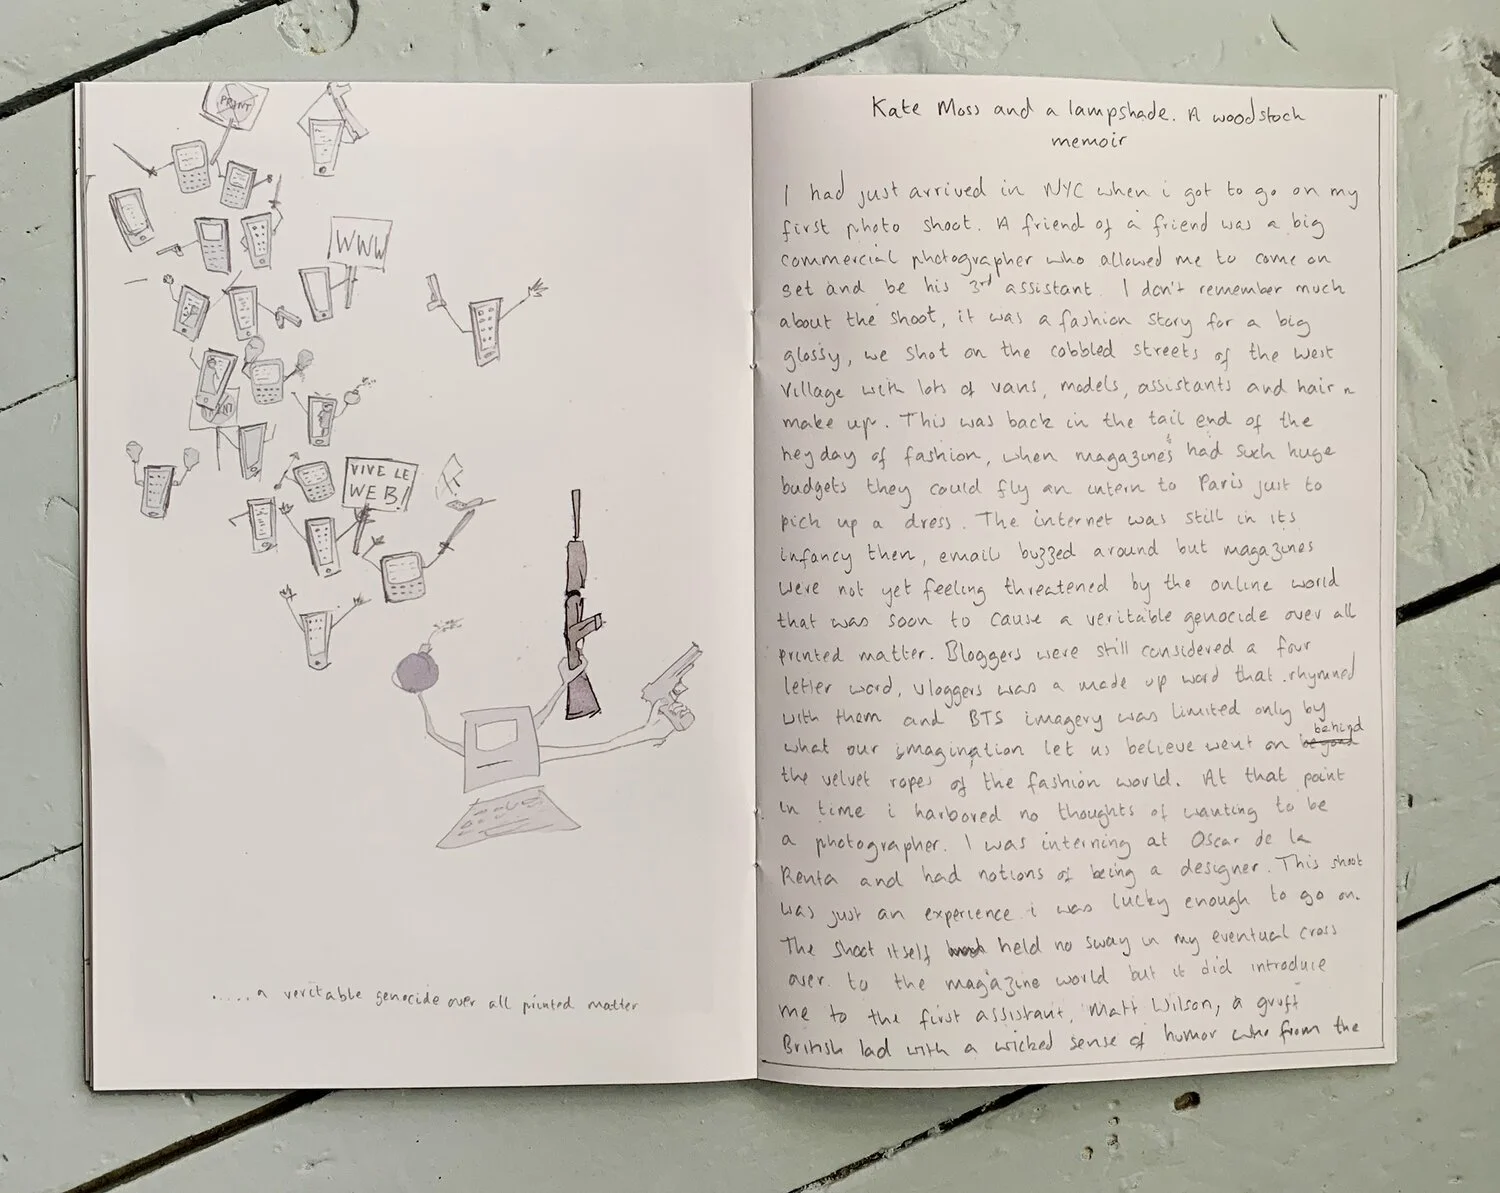 PRINT
WWW
VIVE LE
WEB!
.....a veritable genocide over all printed matter
Kate Moss and a lampshade. A woodstock
memoir
I had just arrived in NYC when i got to go on my
first photo shoot. A friend of a friend was a big
commercial photographer who allowed me to come on
set and be his 3rd assistant. I don't remember much
about the shoot, it was a fashion story for a big
glossy, we shot on the cobbled streets of the west
village with lots of vans, models, assistants and hair n
make up. This was back in the tail end of the
heyday of fashion, when magazines had such huge
budgets they could fly an intern to Paris just to
pick up a dress. The internet was still in its
infancy then, email buzzed around but magazines
were not yet feeling threatened by the online world
that was soon to cause a veritable genocide over all
printed matter. Bloggers were still considered a four
letter word, vloggers was a made up word that rhymned
with them and BTS imagery was limited only by
what our imagination let us believe went on beyond behind
the velvet ropes of the fashion world. At that point
in time i harbored no thoughts of wanting to be
a photographer. I was interning at Oscar de la
Renta and had notions of being a designer. This shoot
was just an experience i was lucky enough to go on.
The shoot itself held no sway in my eventual cross
over to the magazine world but it did introduce
me to the first assistant, Matt Wilson, a gruff
British lad with a wicked sense of humor who from the